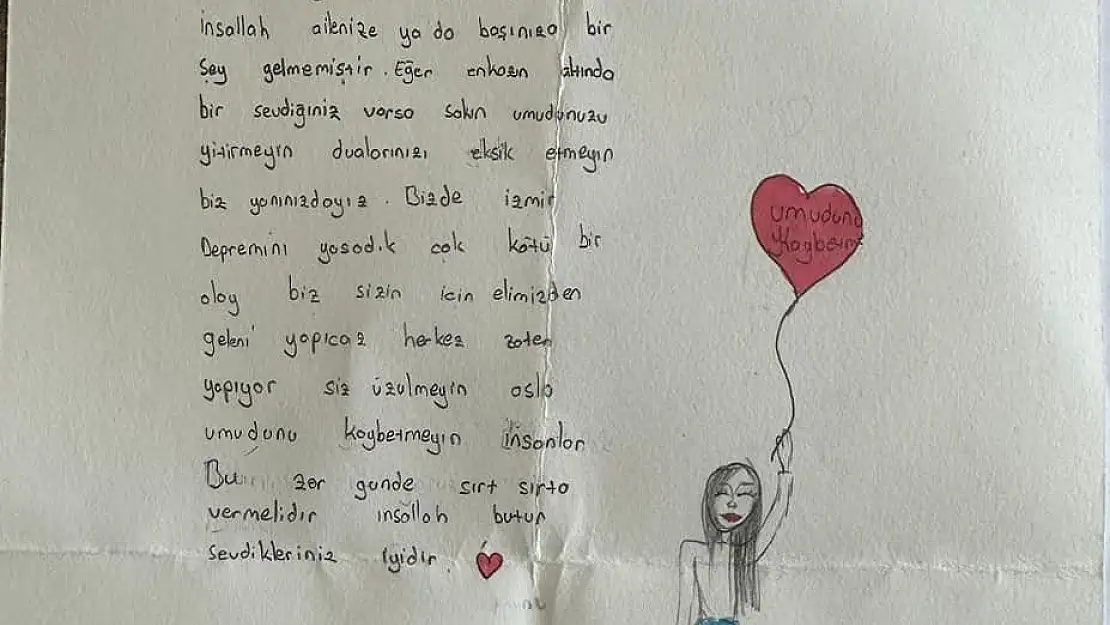 insallah ailenize ya da başınıza bir
Şey gelmemiştir. Eğer enkazın altında
bir sevdiğiniz varsa sakın umudunuzu
yitirmeyin dualarınızı eksik etmeyin
biz yanınızdayız. Bizde izmir
Depremini yasadık cok kötü bir
olay biz sizin icin elimizden
geleni yapıcaz herkez zaten
yapıyor siz üzülmeyin asla
umudunu kaybetmeyin insanlar
Bu zor gunde sırt sırta
vermelidir insallah butun
Sevdikleriniz iyidir.
umudunu
Kaybetme